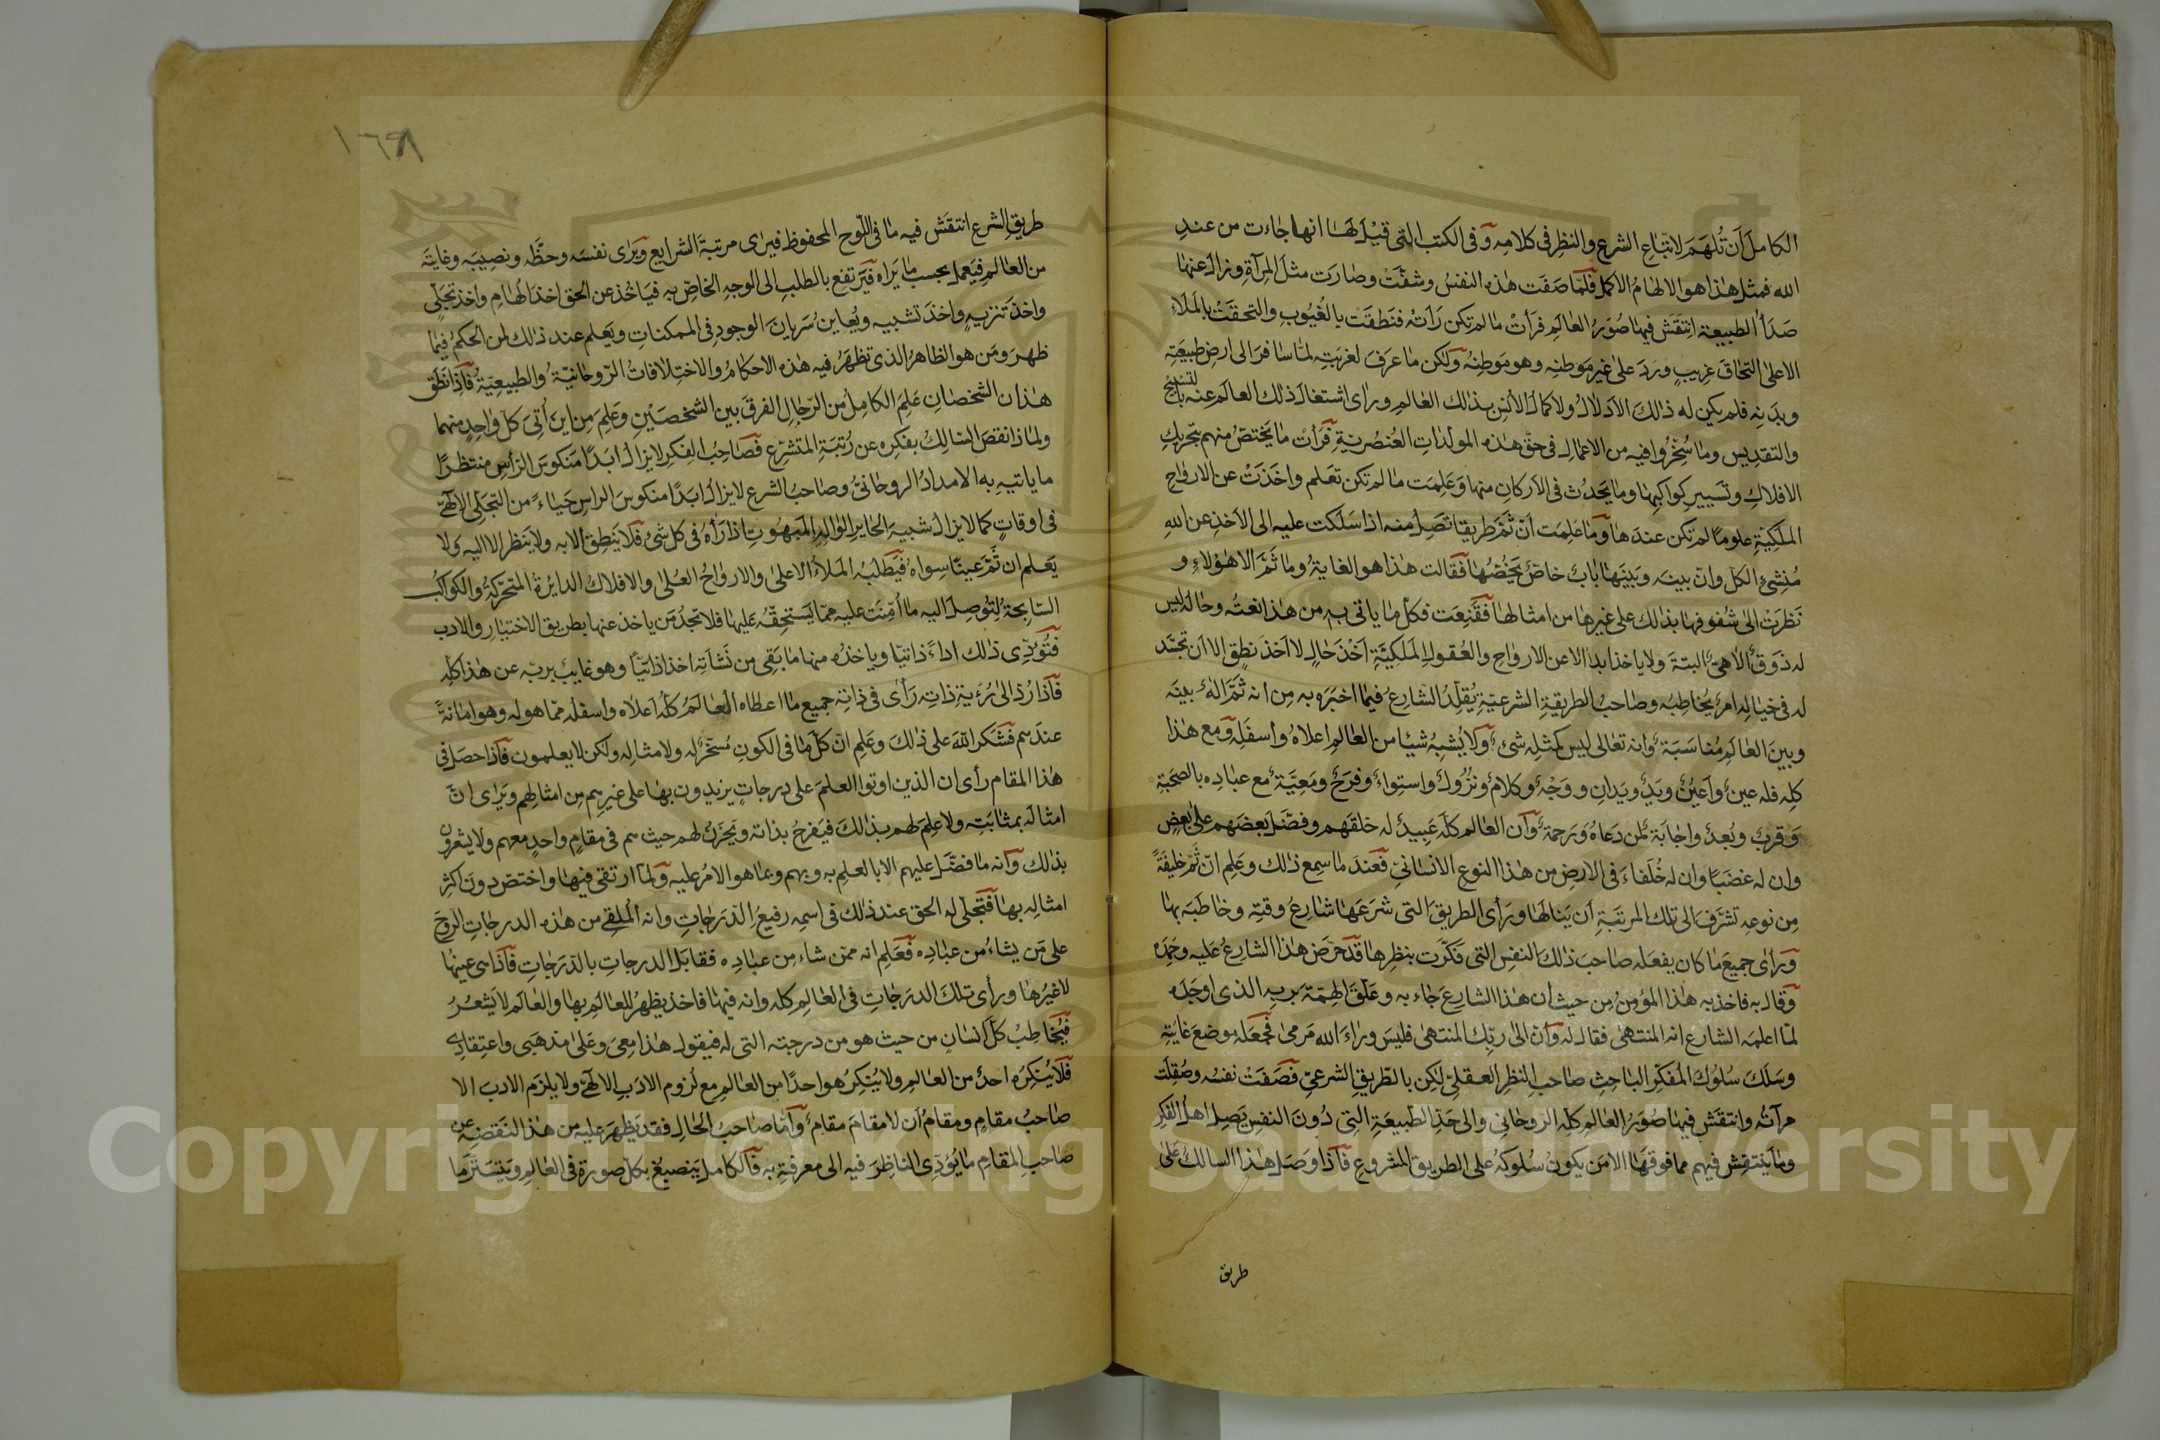 الكامل أن تُلهَمَ لاتباع الشرع والنظر في كلامه وفي الكتب التي قيل لها انها جاءت من عند
الله فمثل هذا هو الالهام الاكمل فلما صفت هذه النفس وشفّت وصارت مثل المرآة وزال عنها
صدأ الطبيعة انتقش فيها صور العالم فرأت ما لم تكن رأته فنطقت بالغيوب والتحقت بالملاء
الاعلى التحاق غريب ورد على غير موطنه وهو موطنه ولكن ما عرف لغربته لمّا سافر الى ارض طبيعته
وبدنه فلم يكن له ذلك الادلال ولا كمال الأنس بذلك العالم ورأى اشتغال ذلك العالم عنه بالتسبيح
والتقديس وما سُخّروا فيه من الاعمال في حق هذه المولدات العنصرية فرأت ما يختص منهم بتحريك
الافلاك وتسيير كواكبها وما يحدث في الاركان منها وعلمت ما لم تكن تعلم واخذت عن الارواح
الملكية علوما لم تكن عندها وما علمت أن ثمّ طريقا تصل منه اذا سلكت عليه الى الاخذ عن الله
مُنشئ الكل وان بينه وبينها باب خاصّ يخصّها فقالت هذا هو الغاية وما ثمّ الا هؤلاء و
نظرت الى شفوفها بذلك على غيرها من امثالها فقنعت فكل ما ياتي به من هذا نعته وحاله ليس
له ذوق الاهيّ البتة ولا ياخذ ابدا الا عن الارواح والعقول الملكية أخذ حال لا اخذ نطق الا ان تجسّد
له في خياله امر يخاطبه وصاحب الطريقة الشرعية يقلد الشارع فيما اخبر به من انه ثم اله بينه
وبين العالم مناسبة وانه تعالى ليس كمثله شئ ولا يُشبه شيئا من العالم اعلاه وأسفله ومع هذا
كله فله عين وأعين ويد ويدان ووجه وكلام ونزول واستواء وفرح ومعيّة مع عباده بالصحبة
وقرب وبُعد واجابة لمن دعاه ورحمة وأن العالم كله عبيد له خلقهم وفضّل بعضهم على بعض
وان له غضبا وان له خلفاء في الارض من هذا النوع الانساني فعند ما سمع ذلك وعلم انّ ثمّ خليفة
من نوعه تشرّف الى تلك المرتبة أن ينالها ورأى الطريق التي شرعها شارع وقته وخاطبه بها
ورأى جميع ما كان يفعله صاحب ذلك النفس التي فكّرت بنظرها قد حرّض هذا الشارع عليه وحمده
وقال به فاخذ به هذا المؤمن من حيث أن هذا الشارع جاء به وعلّق الهمّة بربه الذي اوجده
لمّا اعلمه الشارع انه المنتهى فقال له وأن الى ربّك المنتهى فليس وراء الله مرمى فجعله موضع غايته
وسلك سلوك المفكر الباحث صاحب النظر العقليّ لكن بالطريق الشرعيّ فصفت نفسه وصقلت
مرآته وانتقش فيها صور العالم كله الروحاني والى حدّ الطبيعة التي دون النفس يصل اهل الفكر
وما ينتقش فيهم مما فوقها الا من يكون سلوكه على الطريق المشروع فاذا وصل هذا السالك على
طريق
١٦٩٨
طريق الشرع انتقش فيه ما في اللّوح المحفوظ فيرى مرتبة الشرايع ويرى نفسه وحظّه ونصيبه وغايته
من العالم فيعمل بحسب ما يراه فيرتفع بالطلب الى الوجه الخاص به فيأخذ عن الحق اخذ الهام واخذ تجلّي
واخذ تنزيه واخذ تشبيه ويعاين سريان الوجود في الممكنات ويعلم عند ذلك لمن الحكم فيما
ظهر ومن هو الظاهر الذي تظهر فيه هذه الاحكام والاختلافات الروحانية والطبيعيّة فاذا نطق
هذان الشخصان علم الكامل من الرجال الفرق بين الشخصين وعلم من اين أتى كل واحد منهما
ولماذا نقص السالك بفكره عن رتبة المتشرع فصاحب الفكر لايزال ابدا منكوس الرأس منتظرا
ما ياتيه به الامداد الروحانيّ وصاحب الشرع لايزال ابدا منكوس الراس حياء من التجلي الالهيّ
في اوقات كما لايزال شبيه الحاير الواله المبهوت اذا رآه في كل شئ فلا ينطق الا به ولا ينظر الا اليه ولا
يعلم ان ثَمّ عينا سواه فيطلبه الملأ الاعلى والارواح العلى والافلاك الدايرة المتحركة والكواكب
السّابحة لتوصل اليه ما أُمنت عليه مما يستحقّه عليها فلا تجد من ياخذ عنها بطريق الاختيار والادب
فتؤدّي ذلك اداءً ذاتيا وياخذه منها ما بقي من نشأته اخذا ذاتيّا وهو غايب بربه عن هذا كله
فاذا رُدّ الى رؤية ذاته رأى في ذاته جميع ما اعطاه العالم كله اعلاه واسفله مما هو له وهو امانة
عندهم فشكر الله على ذلك وعلم انّ كل ما في الكون مسخّر له ولامثاله ولكن لا يعلمون فاذا حصل في
هذا المقام رأى ان الذين اوتوا العلم على درجات يزيدون بها على غيرهم من امثالهم ويرى انّ
امثاله بمثابته ولا علم لهم بذلك فيفرح بذاته ويحزن لهم حيث هم في مقام واحد معهم ولا يشعرون
بذلك وأنه ما فضّل عليهم الا بالعلم به وبهم وبما هو الامر عليه ولما ارتقى فيها واختصّ دون اكثر
امثاله بها فتجلّى له الحق عند ذلك في اسمه رفيع الدرجات وانه الملقى من هذه الدرجات الروح
على من يشاء من عباده فعلم انه ممن شاء من عباده فقابل الدرجات بالدرجات فاذا هي عينها
لا غيرها ورأى تلك الدرجات في العالم كله وانه فيها فاخذ يظهر للعالم بها والعالم لا يشعر
فيخاطب كل انسان من حيث هو من درجته التي له فيقول هذا معي وعلى مذهبي واعتقادي
فلا ينكره احد من العالم ولا ينكر هو احدا من العالم مع لزوم الادب الالهيّ ولا يلزم الادب الا
صاحب مقام ومقام أن لا مقام مقام وأمّا صاحب الحال فقد يظهر عليه من هذا النقصه عن
صاحب المقام ما يؤدّي الناظر فيه الى معرفة به فالكامل ينصبغ بكل صورة في العالم ويتستر بما
Copyright © King Saud University